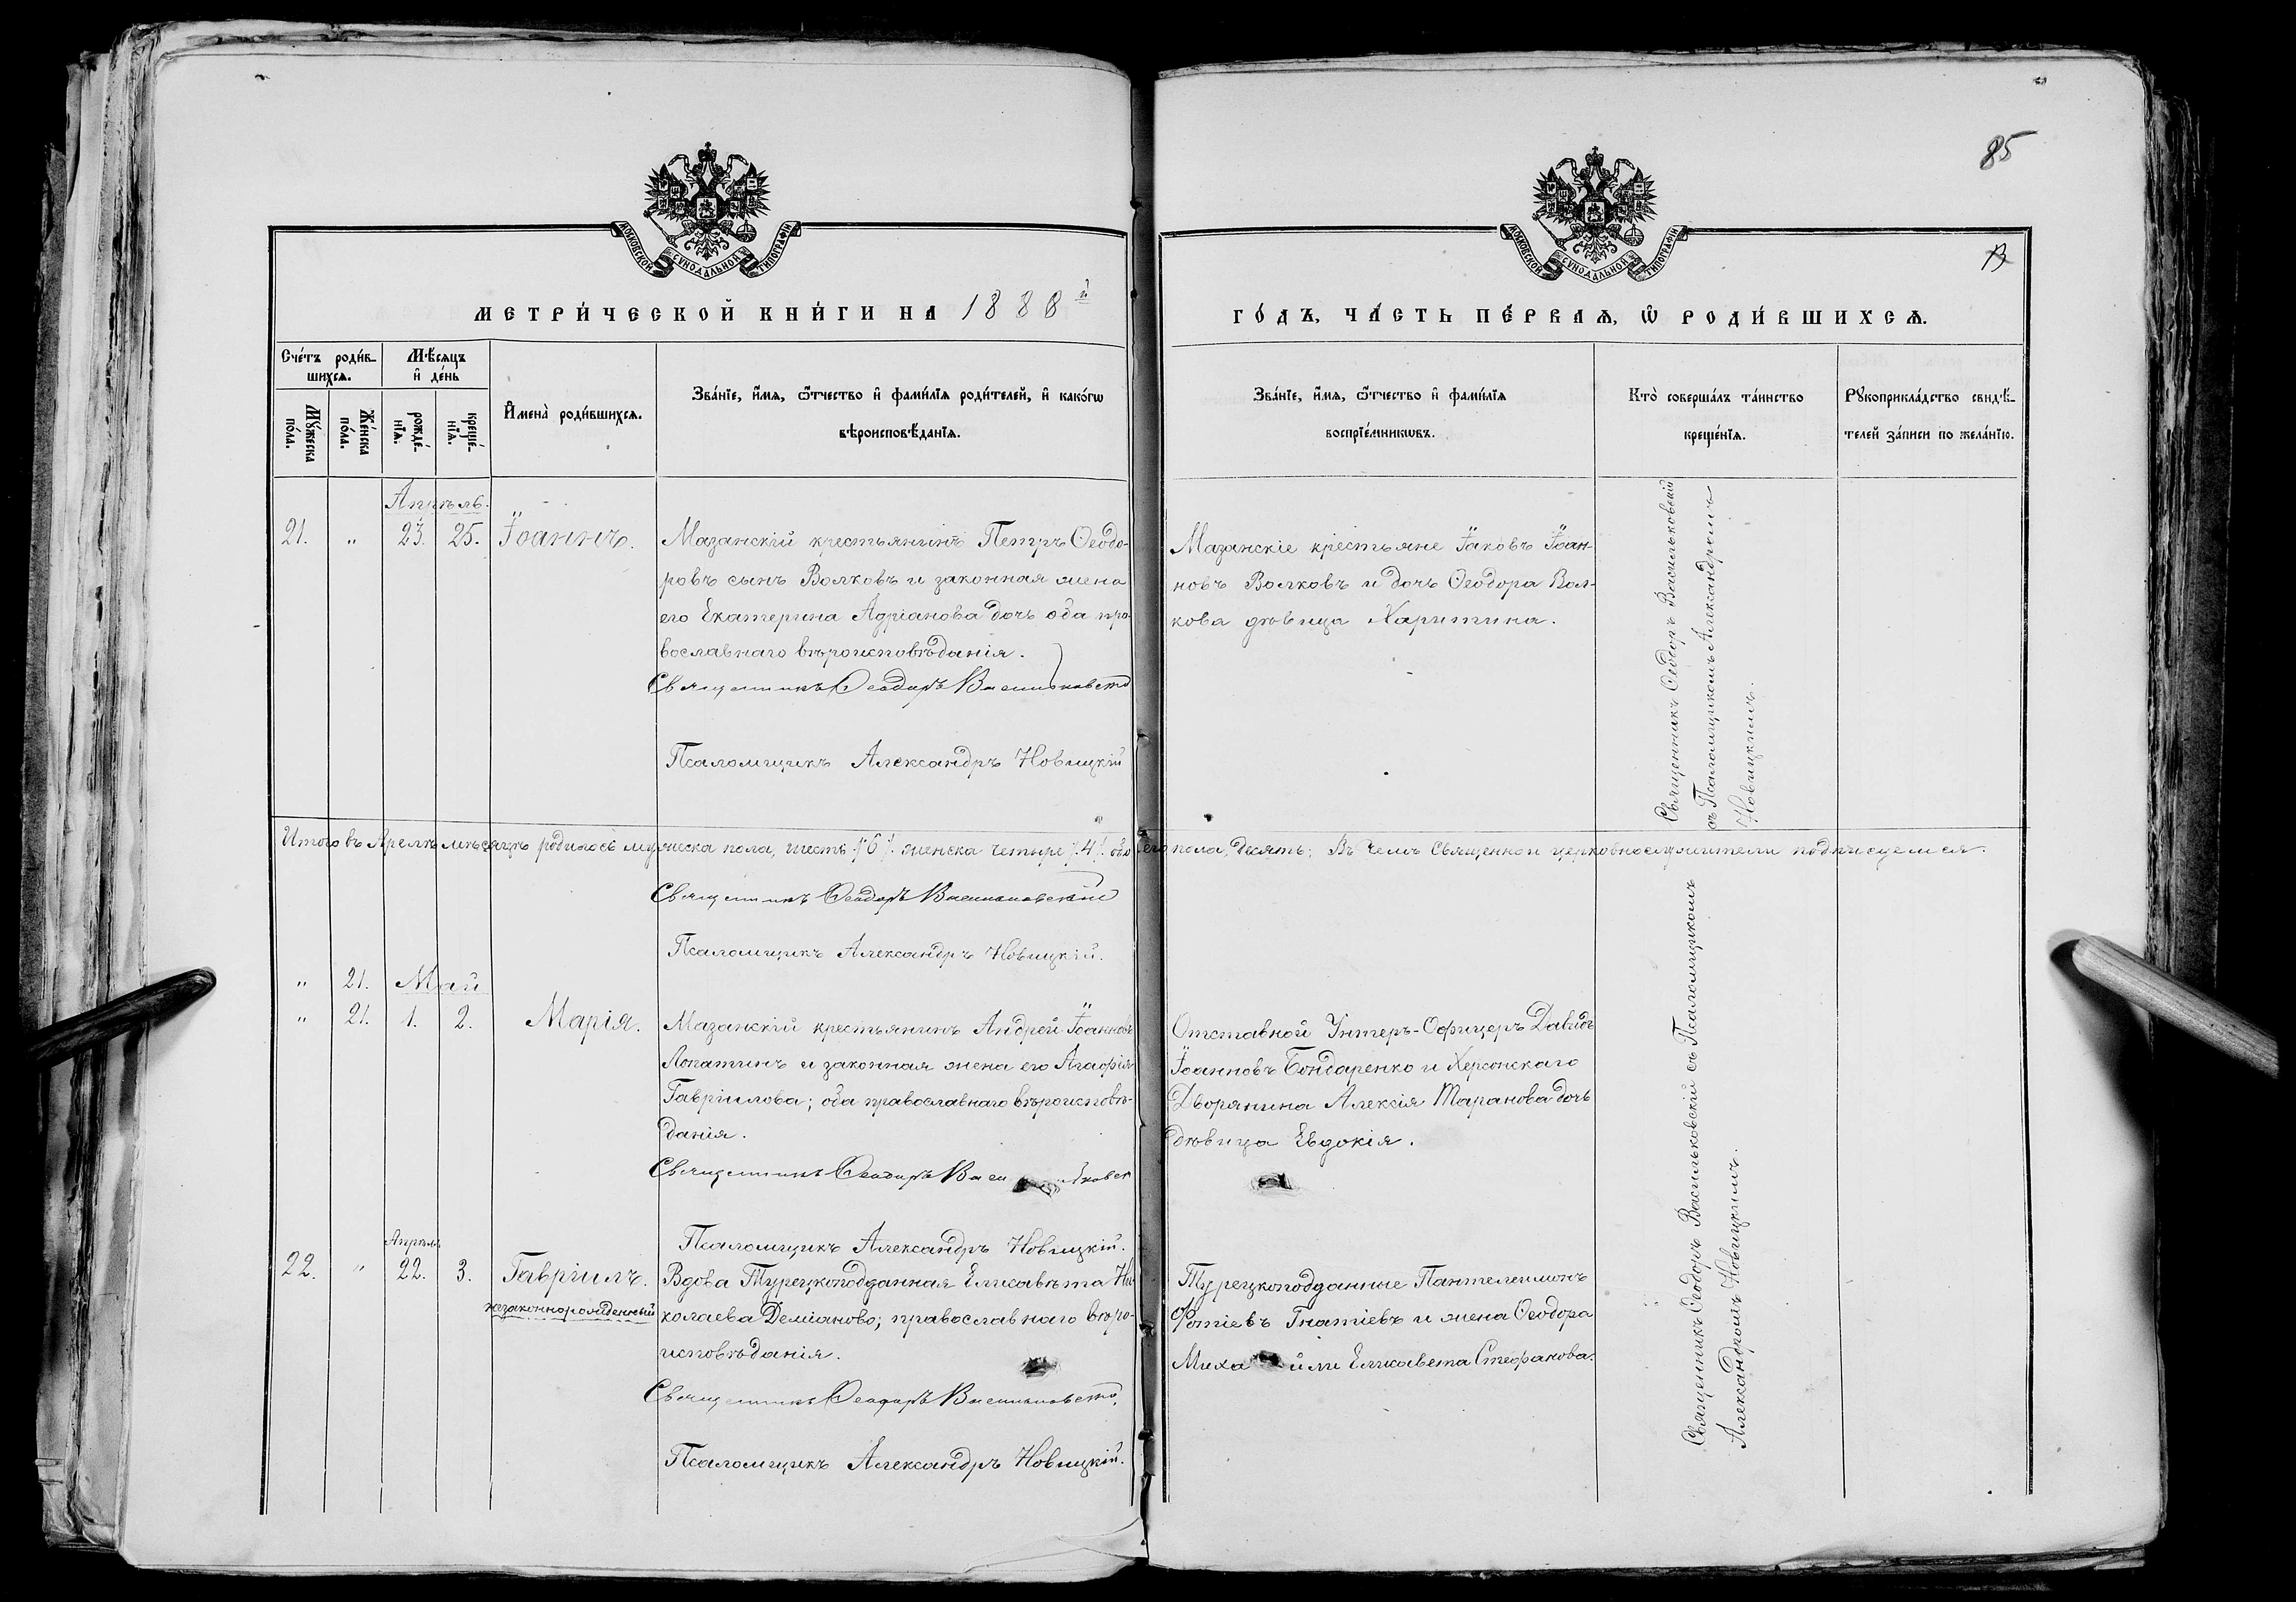 85
МОСКОВСКОЙ СУНОДАЛЬНОЙ ТИПОГРАФІИ
МОСКОВСКОЙ СУНОДАЛЬНОЙ ТИПОГРАФІИ
МЕТРИ́ЧЕСКОЙ КНИ́ГИ НА 1888й
ГО́ДЪ, ЧА́СТЬ ПЕ́РВАѦ, Ѡ РОДИ́ВШИХСѦ.
Сче́тъ роди́в-
шихсѧ.
Мѣ́сѧцъ
и҆ де́нь
Мꙋ́жеска
по́ла.
Же́нска
по́ла.
рожде́-
нїѧ.
креще́-
нїѧ.
И҆мена̀ роди́вшихсѧ.
Зва́нїе, и҆́мѧ, ѻ҆́тчество и҆ фами́лїѧ роди́телей, и҆ како́гѡ
вѣроисповѣ́данїѧ.
Зва́нїе, и҆́мѧ, ѻ҆́тчество и҆ фами́лїѧ
воспрїе́мникѡвъ.
Кто̀ соверша́лъ та́инство
креще́нїѧ.
Рꙋкоприкла́дство свидѣ́-
телей за́писи по жела́нїю.
Апрѣль.
21. " 23. 25. Іоаннъ.
Мазанскій крестьянинъ Петръ Ѳеодо-
ровъ сынъ Волковъ и законная жена
его Екатерина Адріанова дочь оба пра-
вославнаго вѣроисповѣданія.
Священникъ Ѳеодоръ Васильковскій
Псаломщикъ Александръ Новицкій
Мазанскіе крестьяне Іаковъ Іоан-
новъ Волковъ и дочь Ѳеодора Вол-
кова дѣвица Харитина.
Священникъ Ѳеодоръ Васильковскій
съ Псаломщикомъ Александромъ
Новицкимъ.
Итого въ Апрелѣ мѣсяцѣ родилось мужеска пола, шесть /:6:/. женска четыре /:4:/. обоего пола, десять; Въ чемъ Священно и церковнослужители подписуемся.
Священникъ Ѳеодоръ Васильковскій
Псаломщикъ Александръ Новицкій.
" 21. Май
" 21. 1. 2. Марія.
Мазанскій крестьянинъ Андрей Іоанновъ
Лопатинъ и законная жена его Агафія
Гавріилова; оба православнаго вѣроисповѣ-
данія.
Священникъ Ѳеодоръ Васильковск
Псаломщикъ Александръ Новицкій.
Отставной Унтеръ-Офицеръ Давидъ
Іоанновъ Бондаренко и Херсонскаго
Дворянина Алексія Таранова дочь
дѣвица Евдокія.
Апрѣля
22. " 22. 3. Гавріилъ.
незаконнорожденный
Вдова Турецкоподданная Елисавѣта Ни-
колаева Деміаново; православнаго вѣро-
исповѣданія.
Священникъ Ѳеодоръ Васильковскій
Псаломщикъ Александръ Новицкій.
Турецкоподданные Пантелеимонъ
Фотіевъ Гнатіевъ и жена Ѳеодора
Миха йли Елисавета Стефанова.
Священникъ Ѳеодоръ Васильковскій съ Псаломщикомъ
Александромъ Новицкимъ.